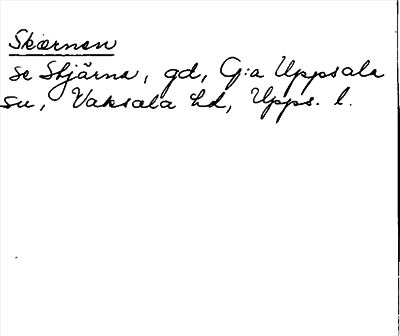 Skærnan
se Stjärna, gd, G:a Uppsala
su, Vaksala hd, Upps. l.